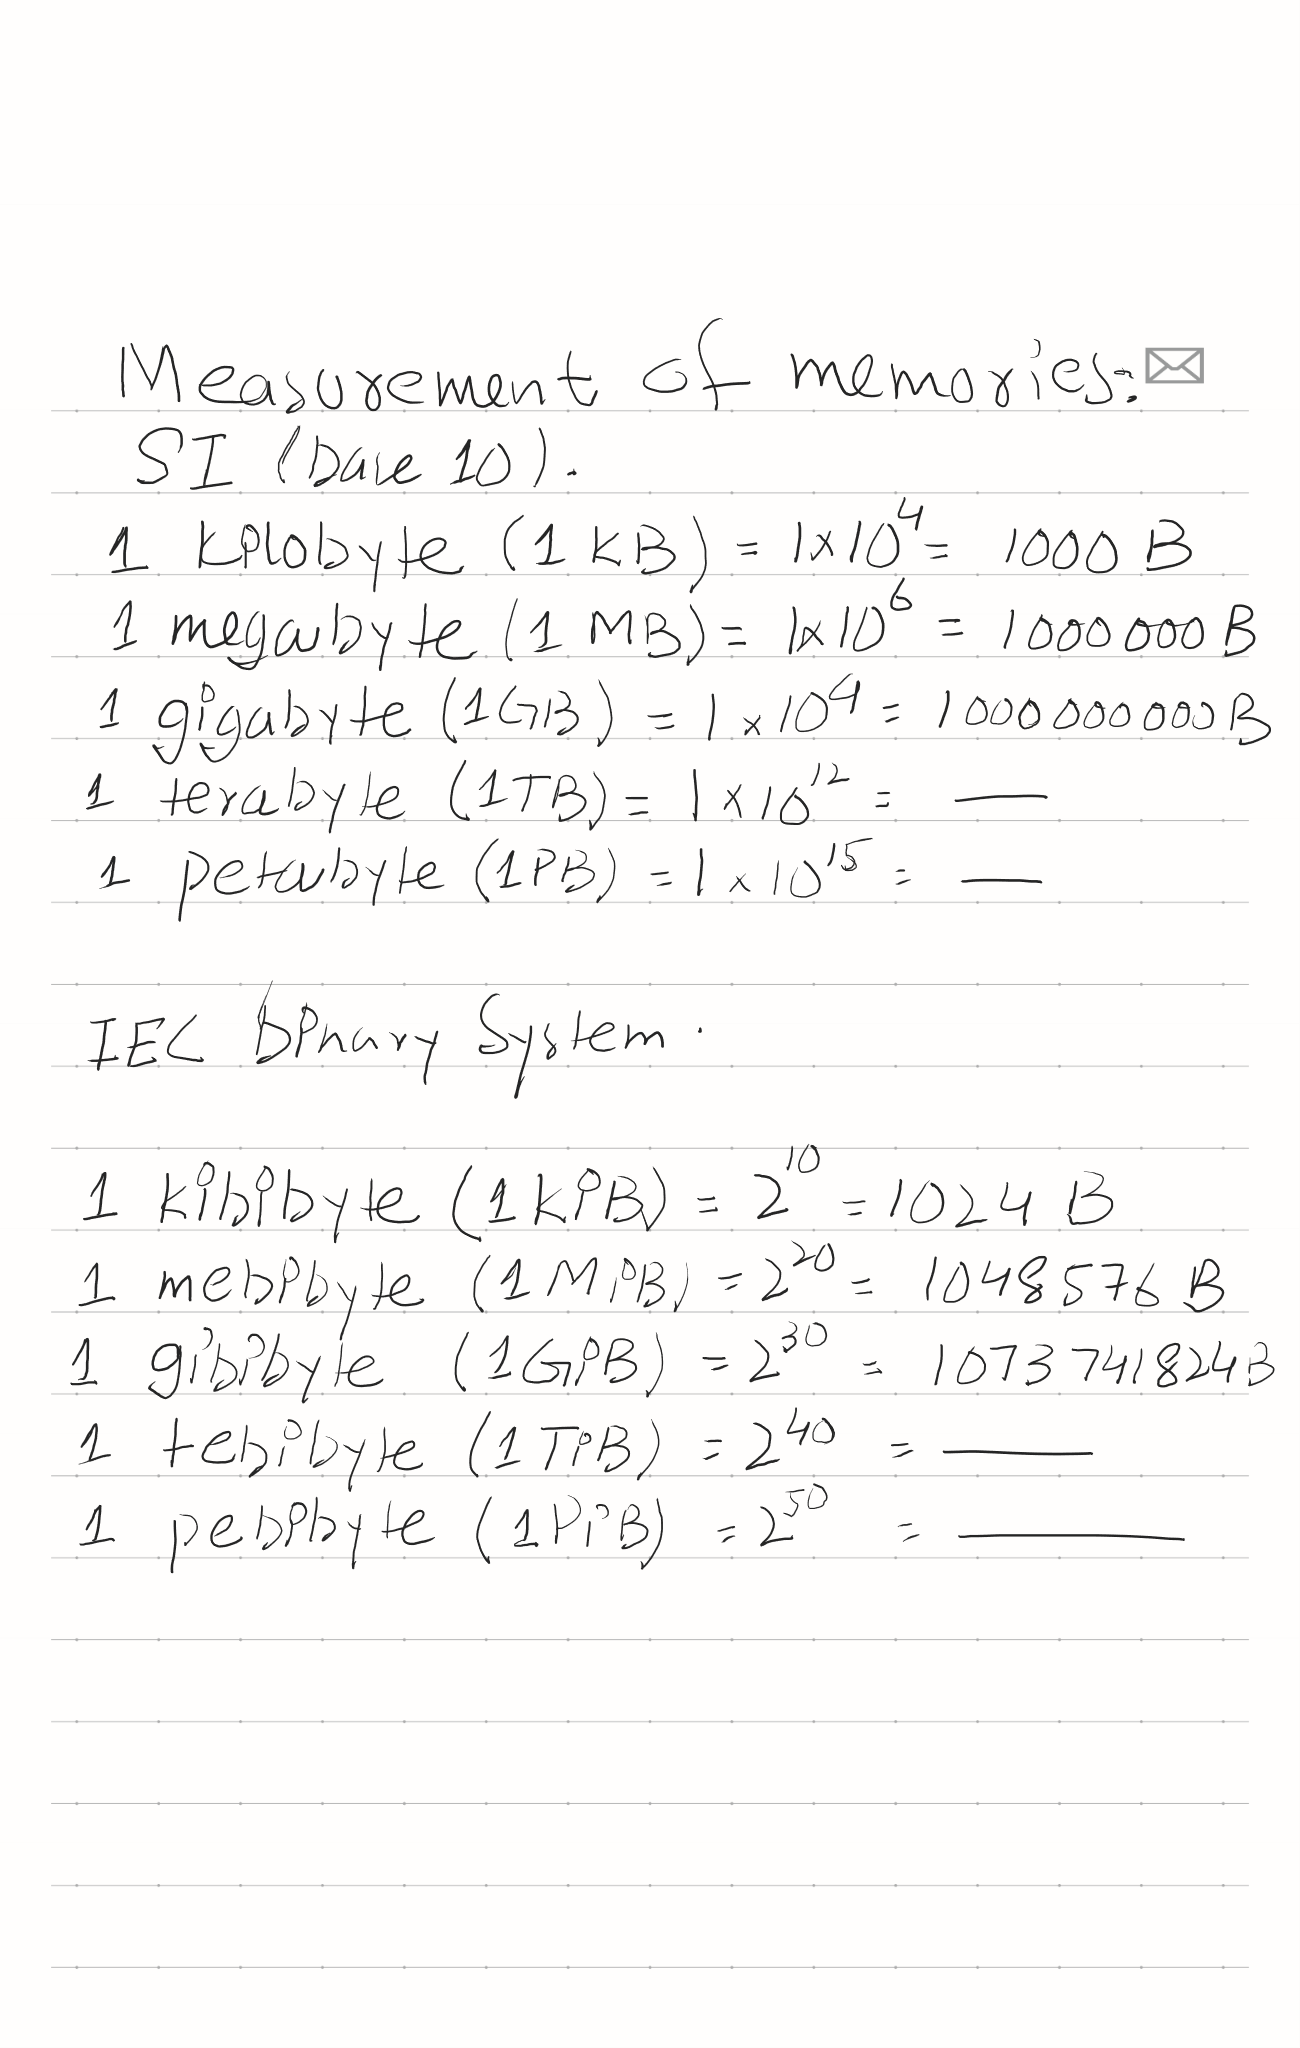 Measurement of memories:
SI (base 10).
1 kilobyte (1 KB) = 1x10⁴ = 1000 B
1 megabyte (1 MB) = 1x10⁶ = 1000000 B
1 gigabyte (1GB) = 1 x 10⁹ = 1000000000 B
1 terabyte (1TB) = 1 x 10¹² = —
1 petabyte (1PB) = 1 x 10¹⁵ = —
IEC Binary System.
1 kibibyte (1KiB) = 2¹⁰ = 1024 B
1 mebibyte (1MiB) = 2²⁰ = 1048576 B
1 gibibyte (1GiB) = 2³⁰ = 1073741824 B
1 tebibyte (1TiB) = 2⁴⁰ = —
1 pebibyte (1PiB) = 2⁵⁰ = —